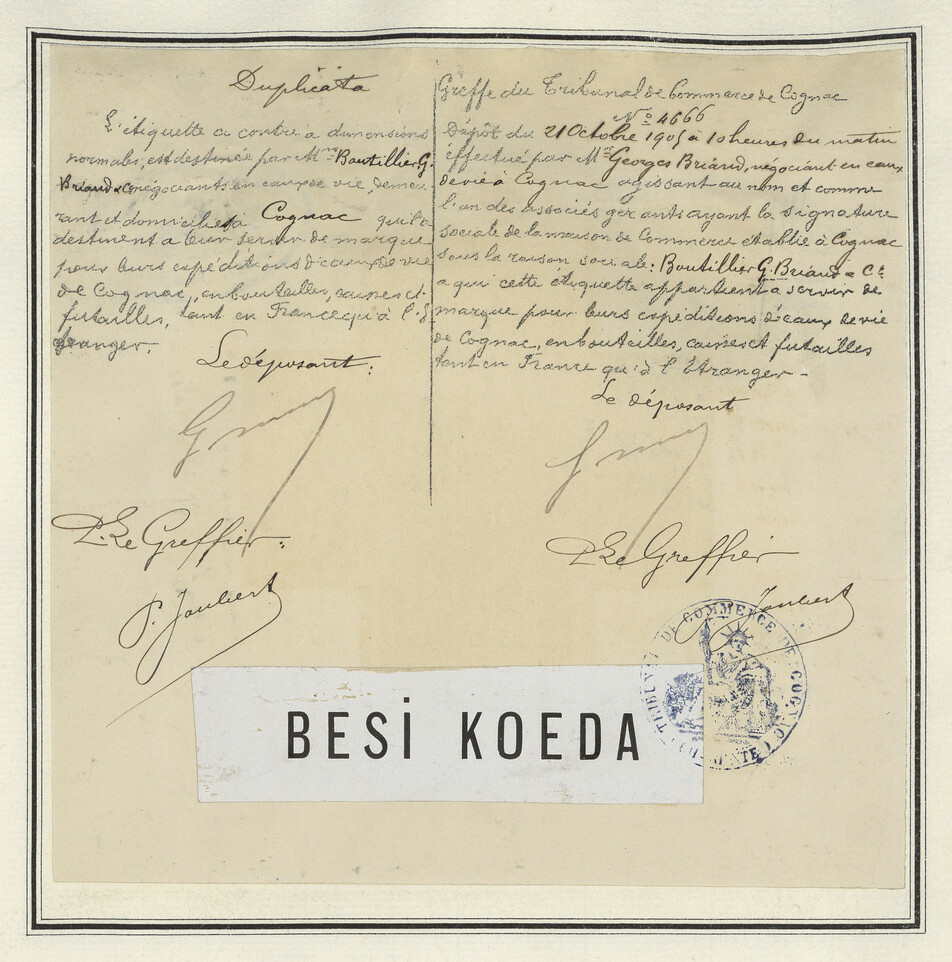 Duplicata
L'étiquette ci contre a dimensions
normales, est destinée par Mrs Boutillier G.
Briand & Co négociants en eaux de vie, demeu
rant et domiciliés à Cognac qu'ils
destinent à leur servir de marque
pour leurs expéditions d'eaux de vie
de Cognac, en bouteilles, caisses et
futailles, tant en France qu'à l'é
tranger.
Le déposant:
P. Le Greffier:
P. Joubert
Greffe du Tribunal de Commerce de Cognac
No 4666
Dépôt du 21 Octobre 1905 à 10 heures du matin
effectué par Mr Georges Briand, négociant en eaux
de vie à Cognac agissant au nom et comme
l'un des associés gérants ayant la signature
sociale de la maison de Commerce établie à Cognac
sous la raison sociale: Boutillier G. Briand & Cie
à qui cette étiquette appartient à servir de
marque pour leurs expéditions d'eaux de vie
de Cognac, en bouteilles, caisses et futailles
tant en France qu'à l'Étranger -
Le déposant
P. Le Greffier
Joubert
TRIBUNAL DE COMMERCE DE COGNAC
BESi KOEDA